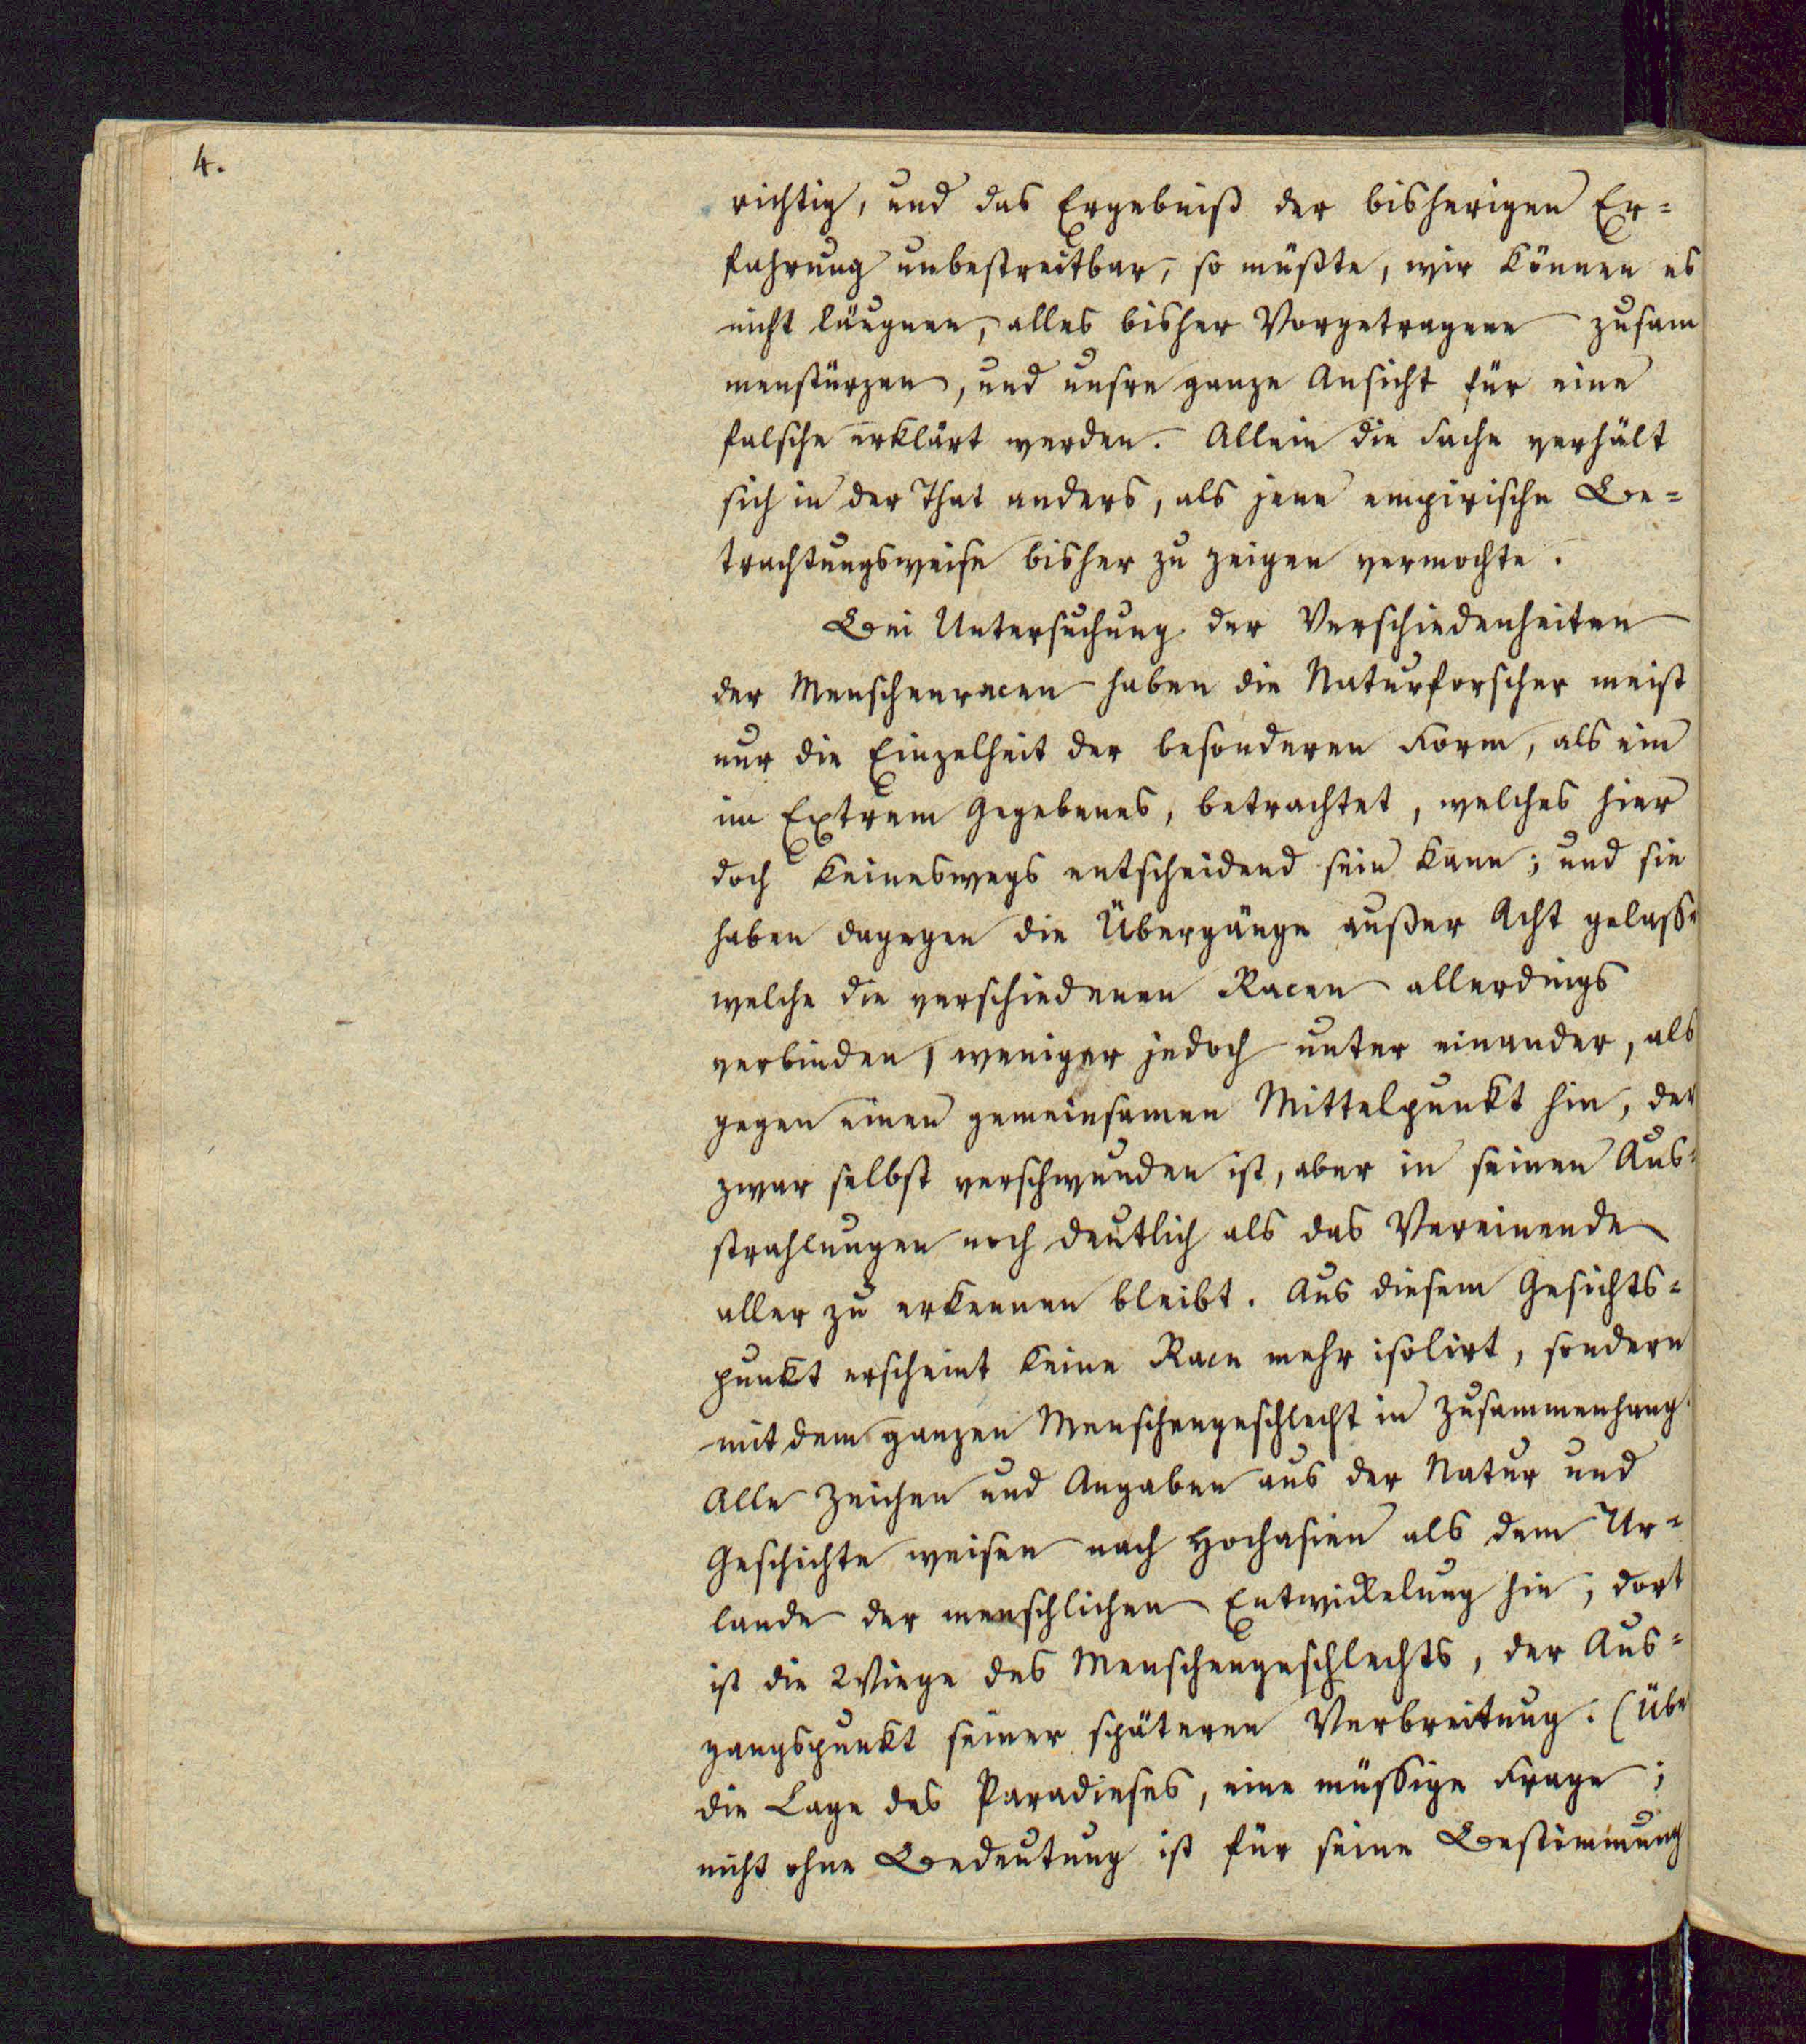 4.
richtig, und das Ergebniß der bisherigen Er=
fahrung unbestreitbar, so müßte, wir können es
nicht läugnen, alles bisher Vorgetragene zusam
menstürzen, und unsre ganze Ansicht für eine
falsche erklärt werden. Allein die Sache verhält
sich in der That anders, als jene empirische Be=
trachtungsweise bisher zu zeigen vermochte.
Bei Untersuchung der Verschiedenheiten
der Menschenracen haben die Naturforscher meist
nur die Einzelheit der besonderen Form, als ein
im Extrem Gegebenes, betrachtet, welches hier
doch keineswegs entscheidend sein kann; und sie
haben dagegen die Übergänge außer Acht gelasse
welche die verschiedenen Racen allerdings
verbinden, weniger jedoch unter einander, als
gegen einen gemeinsamen Mittelpunkt hin, der
zwar selbst verschwunden ist, aber in seinen Aus=
strahlungen noch deutlich als das Vereinende
aller zu erkennen bleibt. Aus diesem Gesichts=
punkt erscheint keine Race mehr isolirt, sondern
mit dem ganzen Menschengeschlecht in Zusammenhang.
Alle Zeichen und Angaben aus der Natur und
Geschichte weisen nach Hochasien als dem Ur=
lande der menschlichen Entwickelung hin, dort
ist die Wiege des Menschengeschlechts, der Aus=
gangspunkt seiner späteren Verbreitung. (Übe
die Lage des Paradieses, eine müssige Frage;
nicht ohne Bedeutung ist für seine Bestimmung